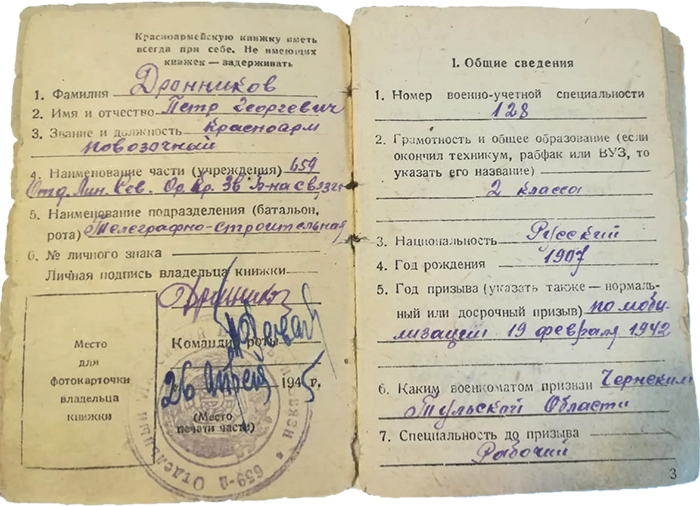 Красноармейскую книжку иметь
всегда при себе. Не имеющих
книжек — задерживать
1. Фамилия Дронников
2. Имя и отчество Петр Георгевич
3. Звание и должность красноарм
повозочный
4. Наименование части (учреждения) 659
Отд. Лин. Сев. Ор. Кр. Зв. б-на связи
5. Наименование подразделения (батальон,
рота) Телеграфно-строительная
6. № личного знака
Личная подпись владельца книжки
Дронников
Место
для
фотокарточки
владельца
книжки
Командир роты
26 Апреля 1945 г.
(Место
печати части)
659-й Отдельный связи
I. Общие сведения
1. Номер военно-учетной специальности
128
2. Грамотность и общее образование (если
окончил техникум, рабфак или ВУЗ, то
указать его название)
2 класса
3. Национальность Русский
4. Год рождения 1907
5. Год призыва (указать также — нормаль-
ный или досрочный призыв) по моби
лизации 19 февраля 1942
6. Каким военкоматом призван Чернским
Тульской Области
7. Специальность до призыва
Рабочий
3